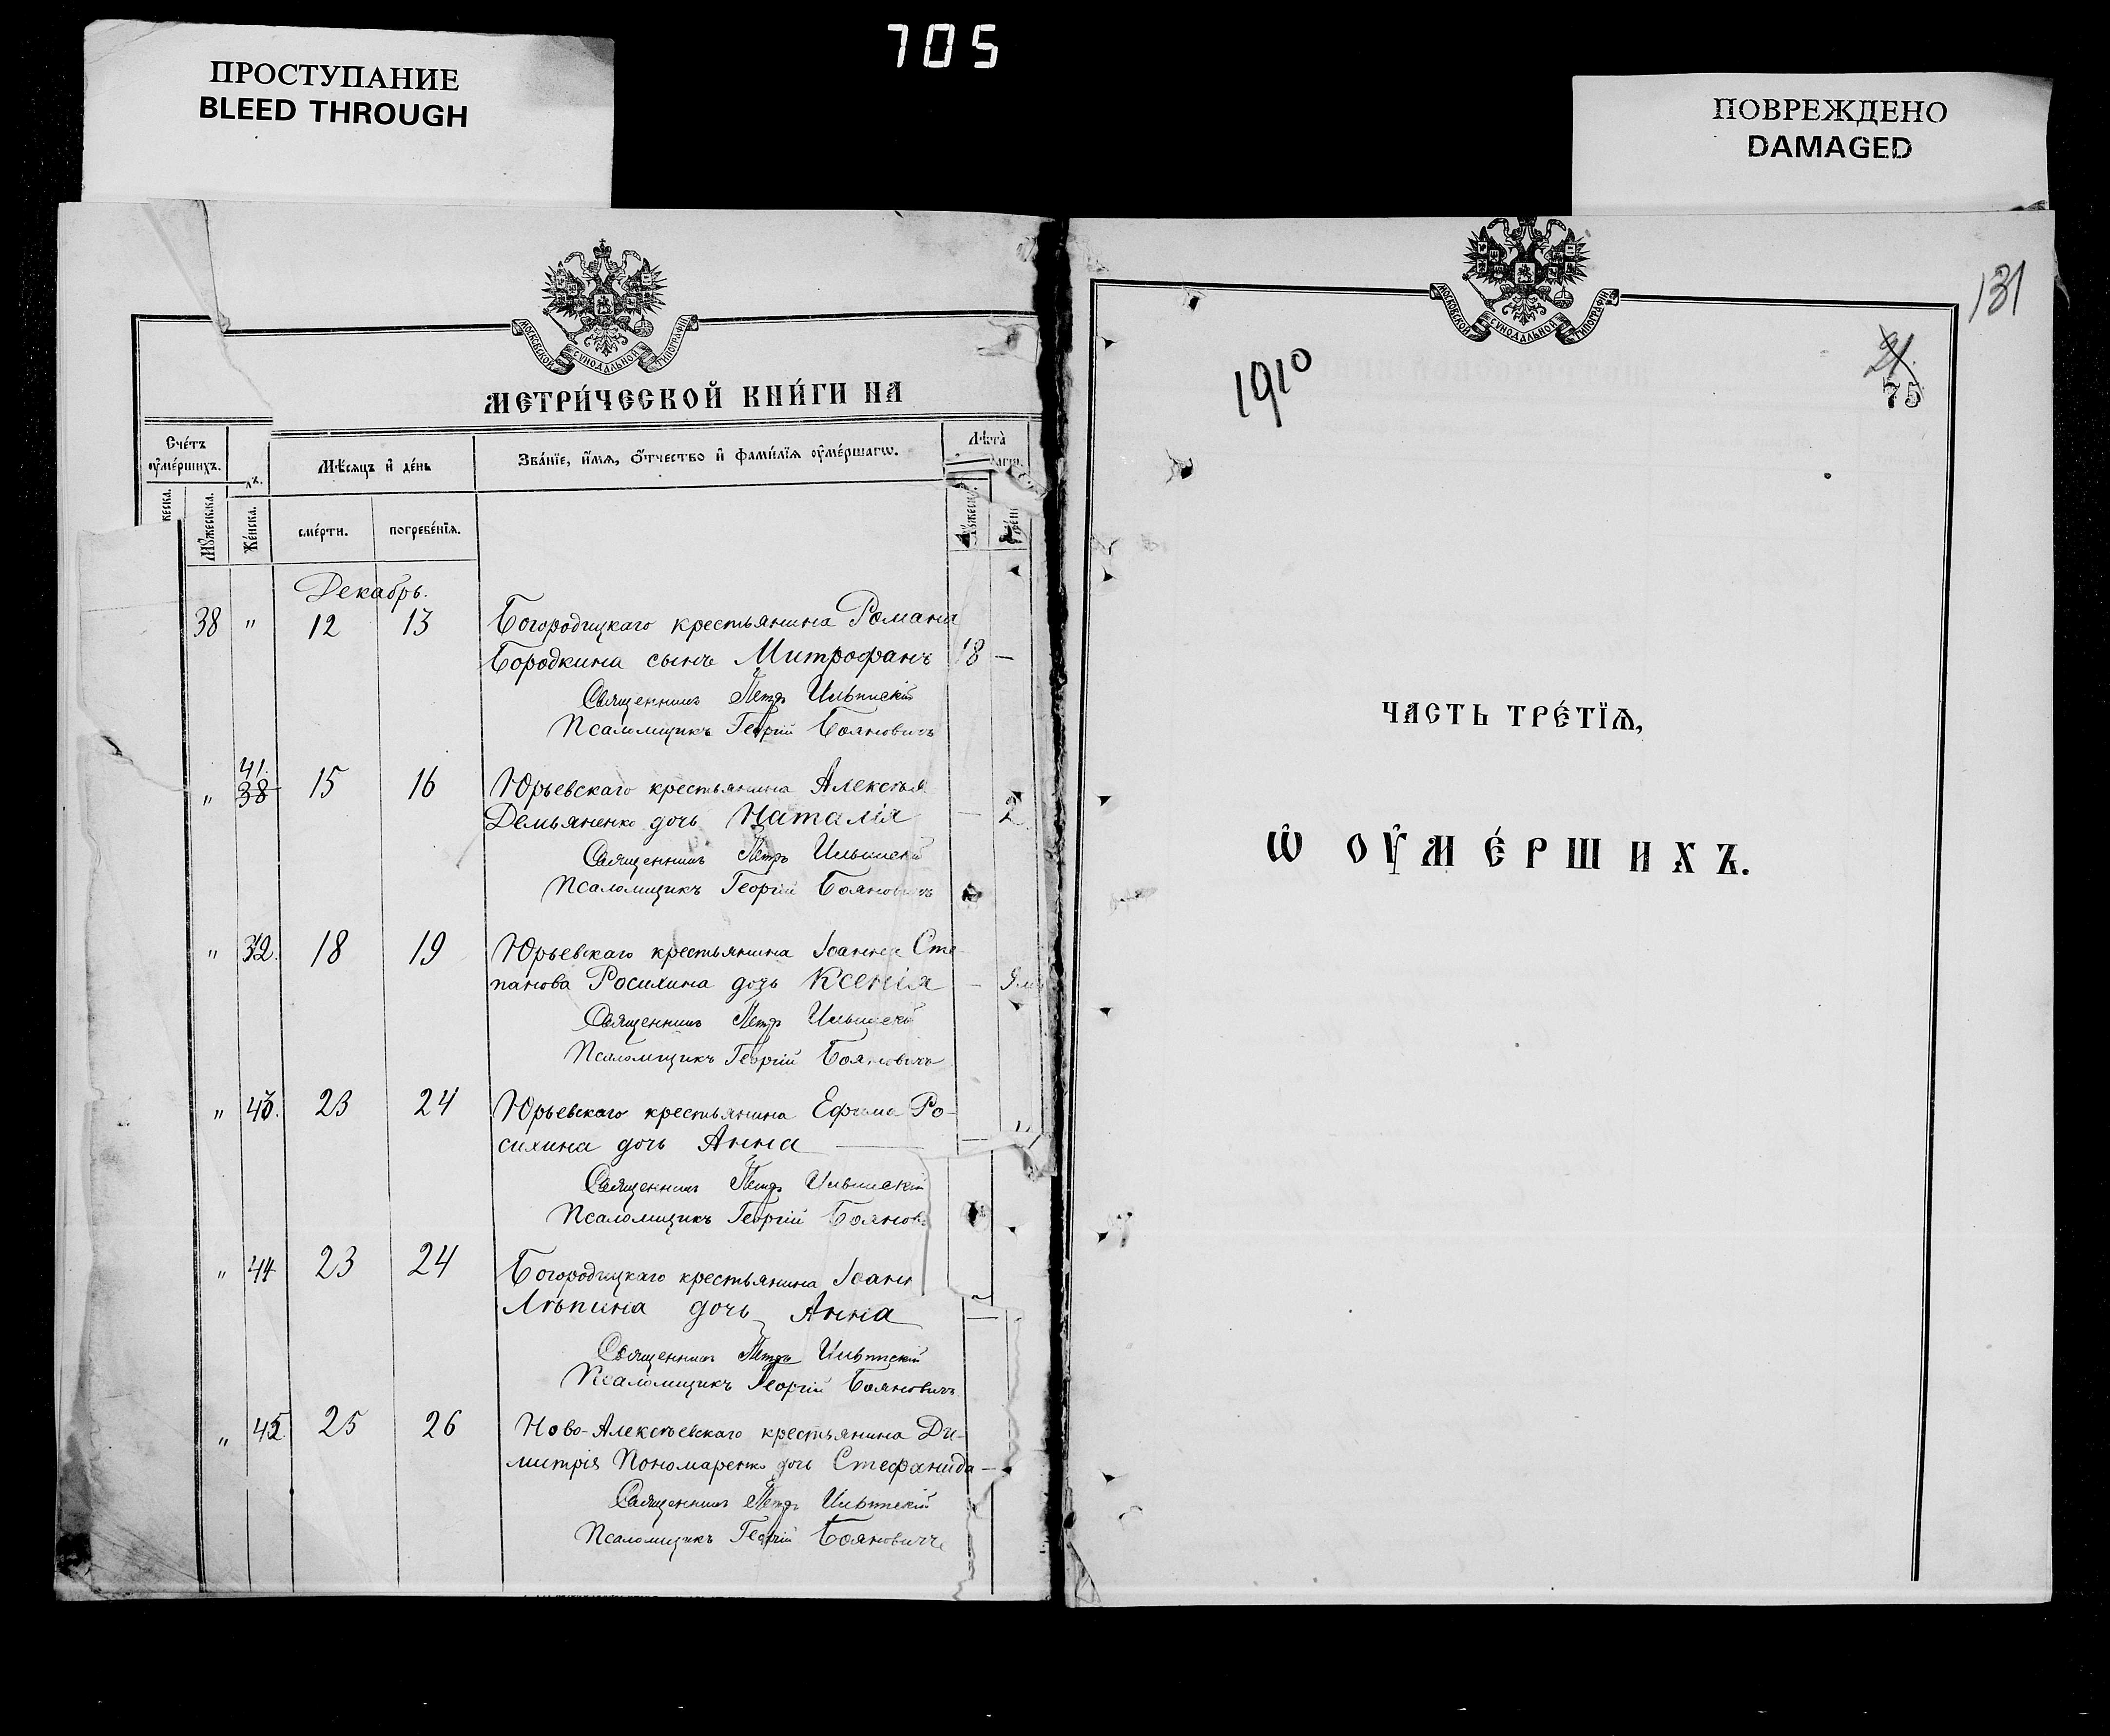 705
ПРОСТУПАНИЕ
BLEED THROUGH
ПОВРЕЖДЕНО
DAMAGED
МОСКОВСКОЙ СѴНОДАЛЬНОЙ ТИПОГРАФІИ
МЕТРИ́ЧЕСКОЙ КНИ́ГИ НА
Сче́тъ
оу҆ме́ршихъ.
Мѣ́сяцъ и҆ де́нь
Зва́нїе, и҆́мѧ, ѻ҆́тчество и҆ фами́лїѧ оу҆ме́ршагѡ.
Лѣта̀
Мꙋ́жеска.
Же́нска.
сме́рти.
погребе́нїѧ.
Декабрь.
38 " 12 13 Богородицкаго крестьянина Романа
Бородкина сынъ Митрофанъ 18 —
Священникъ Петръ Ильинскій
Псаломщикъ Георгій Бояновичъ
" 41. 38 15 16 Юрьевскаго крестьянина Алексѣя
Демьяненко дочь Наталія — 2
Священникъ Петръ Ильинскій
Псаломщикъ Георгій Бояновичъ
" 42. 18 19 Юрьевскаго крестьянина Іоанна Сте
панова Росихина дочь Ксенія —
Священникъ Петръ Ильинскій
Псаломщикъ Георгій Бояновичъ
" 43. 23 24 Юрьевскаго крестьянина Ефима Ро-
сихина дочь Анна —
Священникъ Петръ Ильинскій
Псаломщикъ Георгій Боянов
" 44 23 24 Богородицкаго крестьянина Іоанн
Лѣпина дочь Анна —
Священникъ Петръ Ильинскій
Псаломщикъ Георгій Бояновичъ
" 45 25 26 Ново-Алексѣевскаго крестьянина Ди-
митрія Пономаренко дочь Стефанида —
Священникъ Петръ Ильинскій
Псаломщикъ Георгій Бояновичъ
МОСКОВСКОЙ СѴНОДАЛЬНОЙ ТИПОГРАФІИ
131
1910
75
ЧАСТЬ ТРЕ́ТЇѦ,
Ѡ҆ ОУ҆МЕ́РШИХЪ.